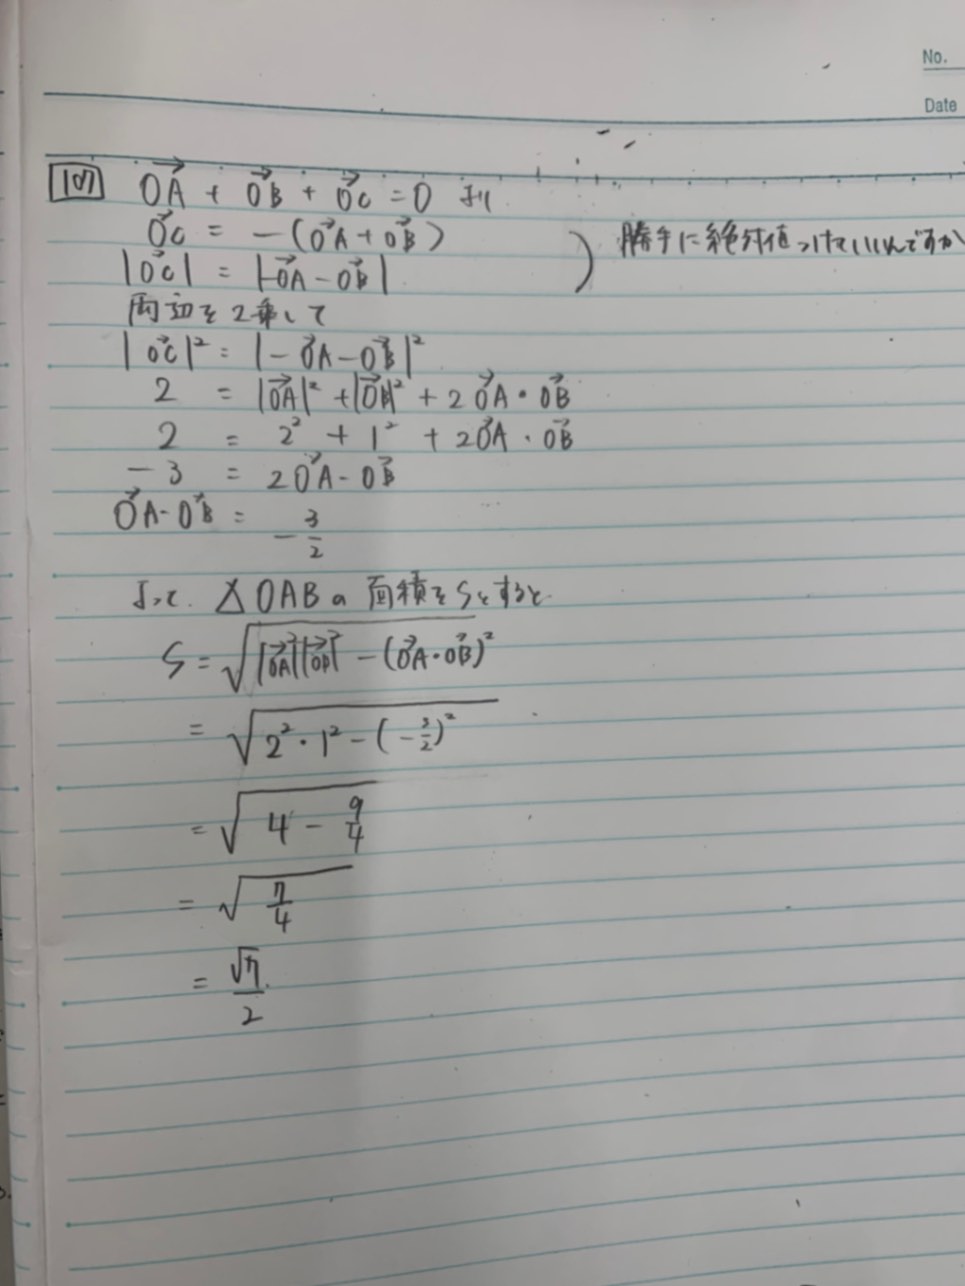 No.
Date
107 OA + OB + OC = 0 より
OC = -(OA + OB)
勝手に絶対値つけていいんですか
|OC| = |-OA - OB|
両辺を2乗して
|OC|² = |-OA - OB|²
2 = |OA|² + |OB|² + 2OA・OB
2 = 2² + 1² + 2OA・OB
-3 = 2OA・OB
OA・OB = -3/2
よって. △OABの面積をSとすると
S = √|OA|²|OB|² - (OA・OB)²
= √2²・1² - (-3/2)²
= √4 - 9/4
= √7/4
= √7/2